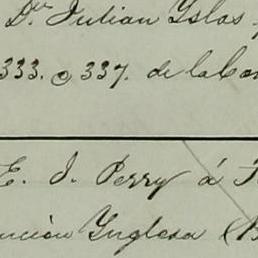 Dn. Julian Yslas
333. @ 337. de la Con
E. J. Perry á
ncion Ynglesa